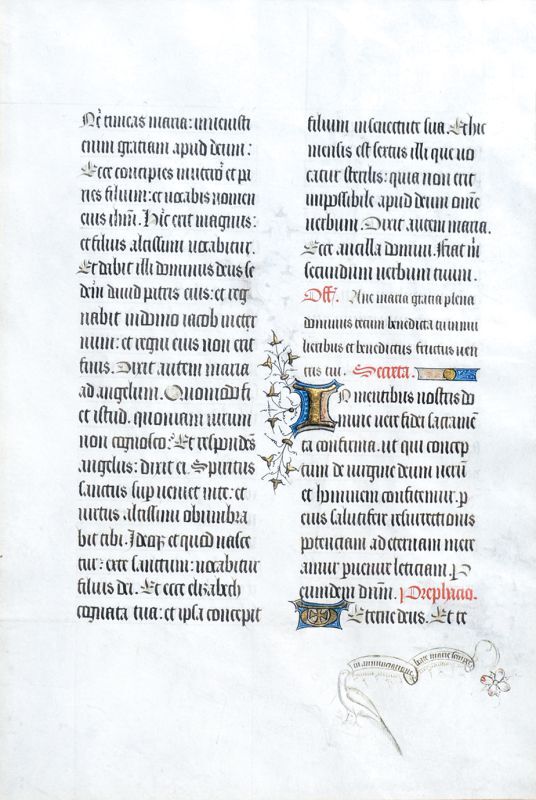 Ne timeas maria: invenisti
enim graciam apud deum:
Ecce concipies in utero et pa
ries filium: et vocabis nomen
eius ihm. Hic erit magnus:
et filius altissimi vocabitur.
Et dabit illi dominus deus se
dem david patris eius: et reg
nabit in domo iacob in eter
num: et regni eius non erit
finis. Dixit autem maria
ad angelum. Quomodo fi
et istud. quoniam virum
non cognosco. Et respondens
angelus: dixit ei. Spiritus
sanctus superveniet in te: et
virtus altissimi obumbra
bit tibi. Ideoque et quod nasce
tur: ex te sanctum: vocabitur
filius dei. Et ecce elizabeth
cognata tua: et ipsa concepit
filium in senectute sua. Et hic
mensis est sextus illi que vo
catur sterilis: quia non erit
impossibile apud deum omne
verbum. Dixit autem maria.
Ecce ancilla domini. fiat mi
secundum verbum tuum.
Off. Ave maria gracia plena
dominus tecum benedicta tu in mu
lieribus et benedictus fructus ven
tris tui. Secreta.
In mentibus nostris do
mine vere fidei sacramen
ta confirma. ut qui concep
tum de virgine deum verum
et hominem confitemur. p
eius salutifere resurrectionis
potenciam ad eternam mere
amur pervenire leticiam. P
eumdem dnm. Prephacio.
Eterne deus. Et te
in annunciatione beate marie semper